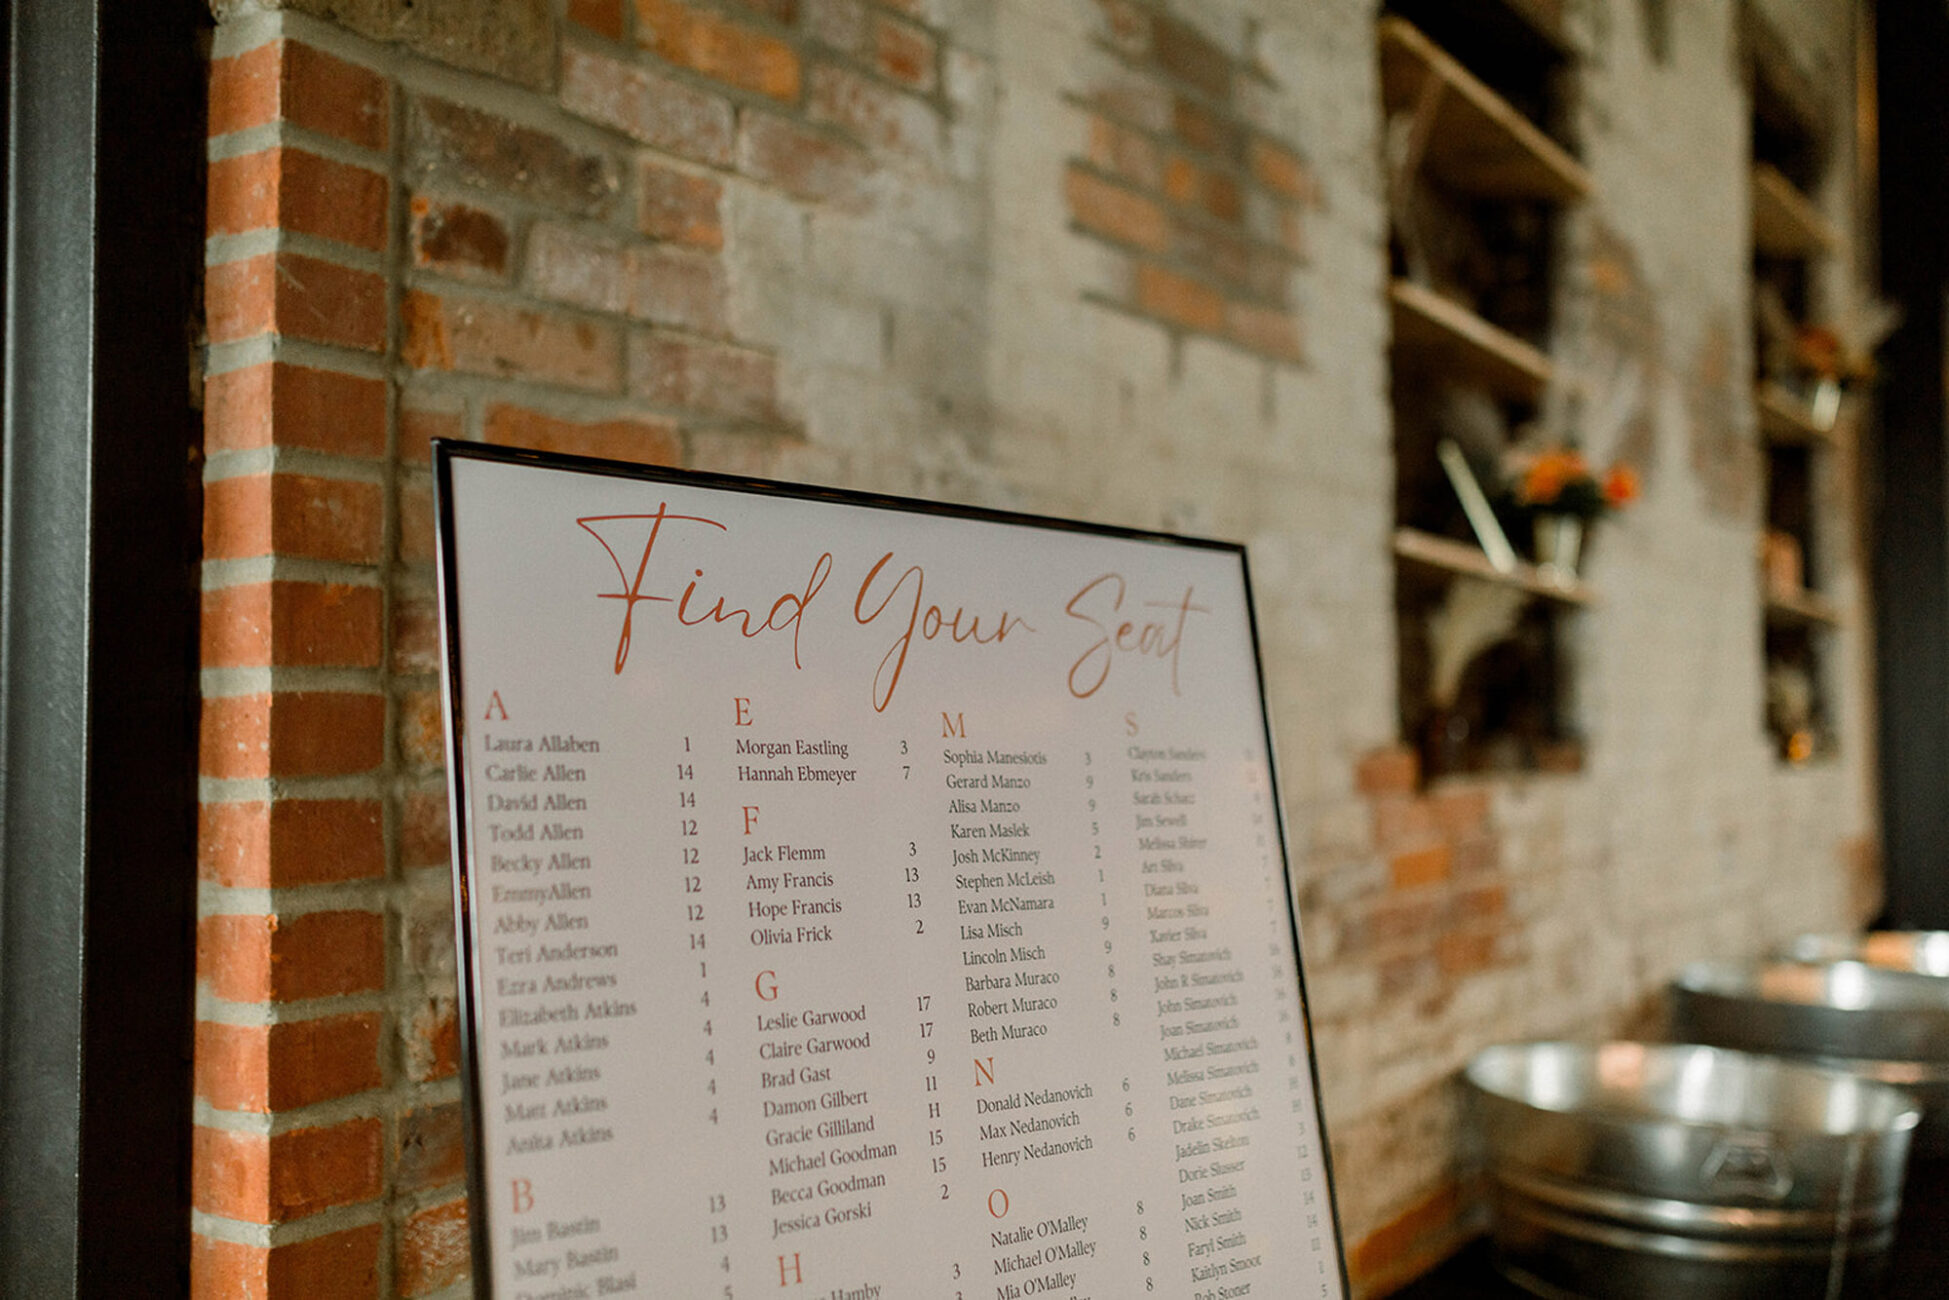 Find Your Seat
A
Laura Allaben 1
Carlie Allen 14
David Allen 14
Todd Allen 12
Becky Allen 12
EmmyAllen 12
Abby Allen 12
Teri Anderson 14
Ezra Andrews 1
Elizabeth Atkins 4
Mark Atkins 4
Jane Atkins 4
Matt Atkins 4
Anita Atkins 4
B
Jim Bastin 13
Mary Bastin 13
Blasi 4
5
E
Morgan Eastling 3
Hannah Ebmeyer 7
F
Jack Flemm 3
Amy Francis 13
Hope Francis 13
Olivia Frick 2
G
Leslie Garwood 17
Claire Garwood 17
Brad Gast 9
Damon Gilbert 11
Gracie Gilliland H
Michael Goodman 15
Becca Goodman 15
Jessica Gorski 2
H
Hamby 3
M
Sophia Manesiotis 3
Gerard Manzo 9
Alisa Manzo 9
Karen Maslek 5
Josh McKinney 2
Stephen McLeish 1
Evan McNamara 1
Lisa Misch 9
Lincoln Misch 9
Barbara Muraco 8
Robert Muraco 8
Beth Muraco 8
N
Donald Nedanovich 6
Max Nedanovich 6
Henry Nedanovich 6
O
Natalie O'Malley 8
Michael O'Malley 8
Mia O'Malley 8
8
S
Clayton Sanders
Kris Sanders
Sarah
Jim Sewell
Melissa
Art Silva 7
Diana Silva 7
Marcos Silva 7
Xavier Silva 7
Shay Simatovich 16
John R Simatovich 16
John Simatovich 16
Joan Simatovich 16
Michael Simatovich 8
Melissa Simatovich 8
Dane Simatovich
Drake Simatovich
Jadelin Skelton 3
Dorie Slusser 12
Joan Smith 13
Nick Smith 14
Faryl Smith 14
Kaitlyn Smoot 11
Rob Stoner 1
5